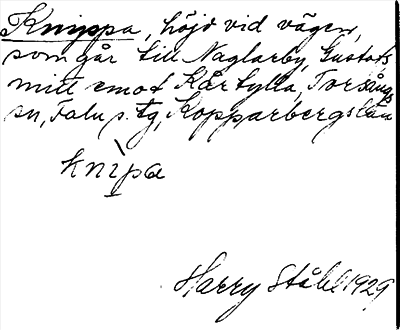 Knippa, höjd vid vägen,
som går till Naglarby, Gustafs
mitt emot Kårtylla, Torsångs
sn, Falu s. tg, Kopparbergs län
knìpa
Harry Ståhl 1929